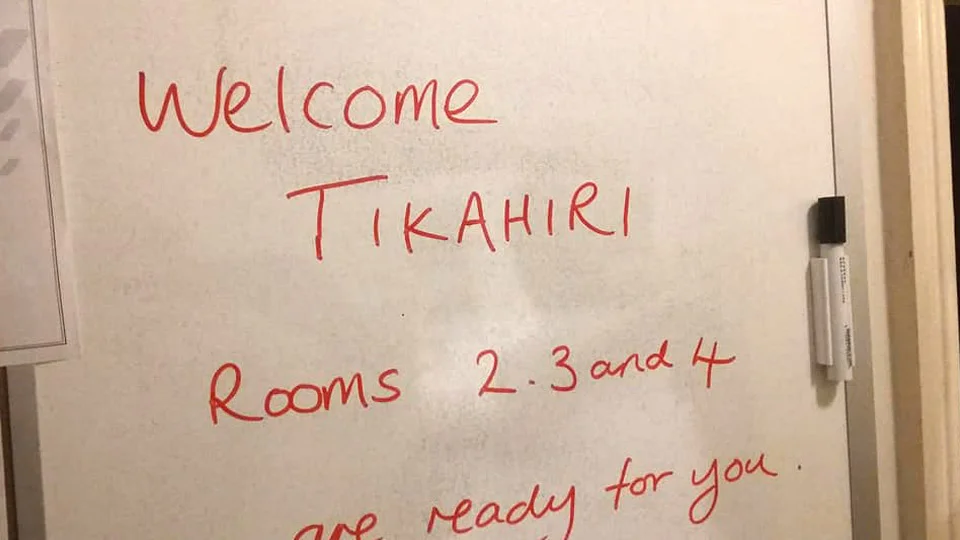 Welcome
TIKAHIRI
Rooms 2.3 and 4
are ready for you.